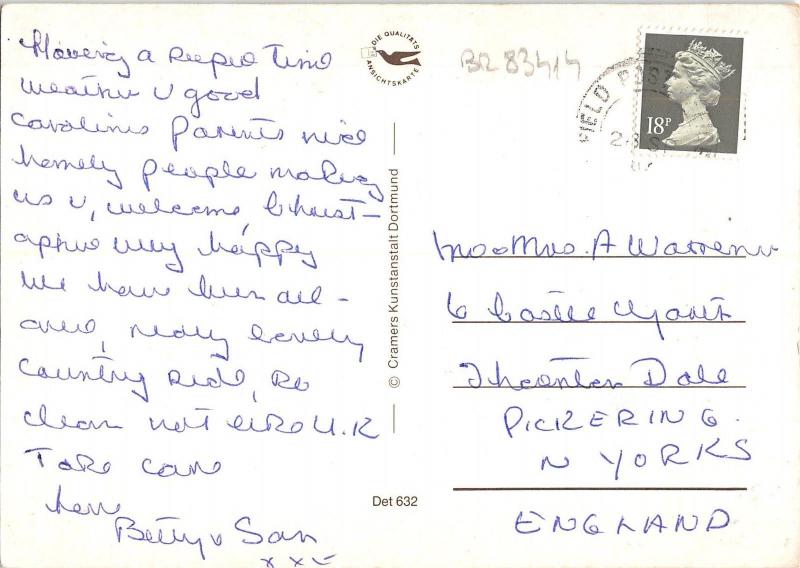 Having a super time
weather v good
Carolines parents nice
homely people making
us v, welcome, Christ-
opher very happy
We have been all-
over, really lovely
country side, so
clean not like U.K
Take care
love
Betty v San
x x x
DIE QUALITÄTS
ANSICHTSKARTE
BR 83414
FIELD POST
18P
© Cramers Kunstanstalt Dortmund
Det 632
Mr o Mrs. A Warrener
6 Castle
Thornton Dale
PICKERING.
N YORKS
ENGLAND